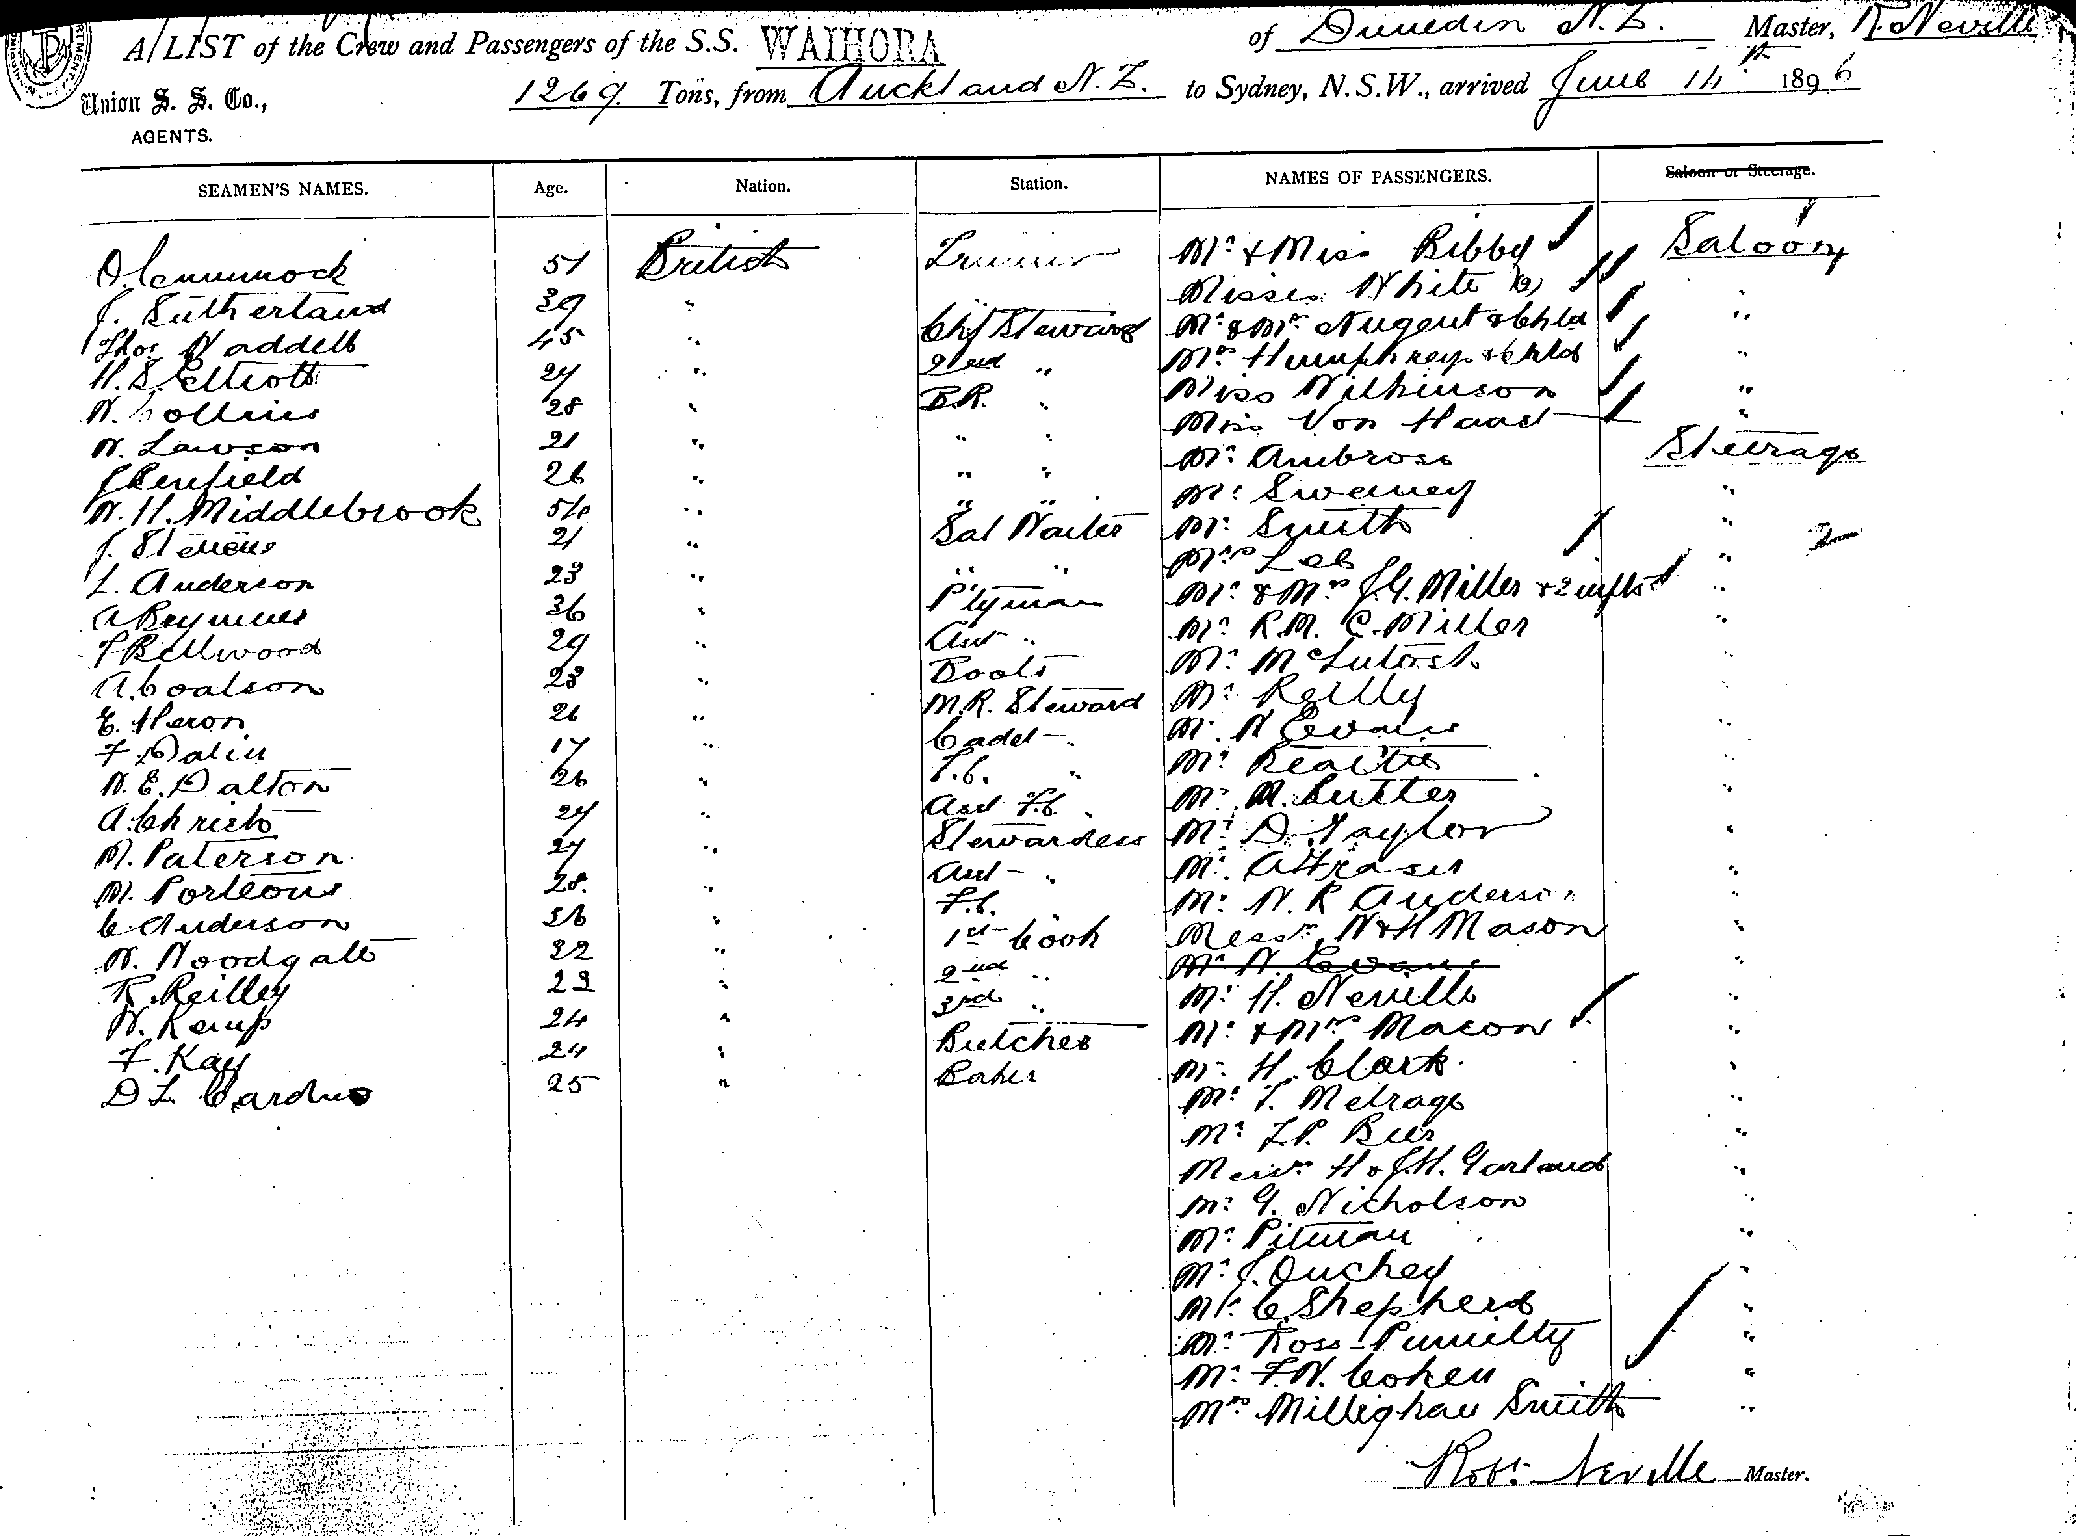 A LIST of the Crew and Passengers of the S.S. WAIHORA of Dunedin N.Z. Master, R. Neville
1269 Tons, from Auckland N.Z. to Sydney, N.S.W., arrived June 14th 1896
Union S. S. Co.,
AGENTS.
SEAMEN'S NAMES. Age. Nation. Station. NAMES OF PASSENGERS. Saloon or Steerage.
51 British Trimmer Mr & Miss Bibby Saloon
J. Sutherland 39 " " Misses White (2) "
Thos Waddell 45 " Chf Steward Mr & Mrs Nugent & Chld "
H. S. Elliott 27 " 2nd " Mrs Humphreys & Chld "
W. Collins 28 " B.R. " Miss Wilkinson "
W. Lawson 21 " " " Miss Von Haast "
J Penfield 26 " " " Mr Ambrose Steerage
W. H. Middlebrook 56 " " " Mr Swaney "
J. Stevens 21 " Sal Waiter Mr Smith "
L. Anderson 23 " " " Mrs Lee "
A 36 " P'tyman Mr & Mrs J.G. Miller & 2 infts "
T Bellwood 29 " Asst " Mr R.M. C. Miller "
A. Coalson 23 " Boots Mr McIntosh "
E. Heron 21 " M.R. Steward Mr Reilly "
F Dalin 17 " Cadet Mr W Evans "
W. E. Dalton 26 " F.C. " Mr Beattie "
A. Christo 27 " Asst F.C. Mr M. Cutter "
M. Paterson 27 " Stewardess Mr D. Taylor "
M. Porteous 28 " Asst " Mr A Fraser "
C Anderson 36 " F.C. Mr W. R Anderson "
W. Woodgate 32 " 1st Cook Messrs W & H Mason "
R. Reilley 23 " 2nd " Mr W. Evans "
W. Kemp 24 " 3rd " Mr H. Neville "
F. Kay 24 " Butcher Mr & Mrs Macon "
D L Cardno 25 " Baker Mr H. Clark "
Mr T. "
Mr "
Messrs H & J.H. Garland "
Mr G. Nicholson "
Mr Pitman "
Mr J. Duchey "
Mr C. Shepherd "
Mr Ross "
Mr F.W. Cohen "
Mrs Millighan Smith "
Robt Neville Master.